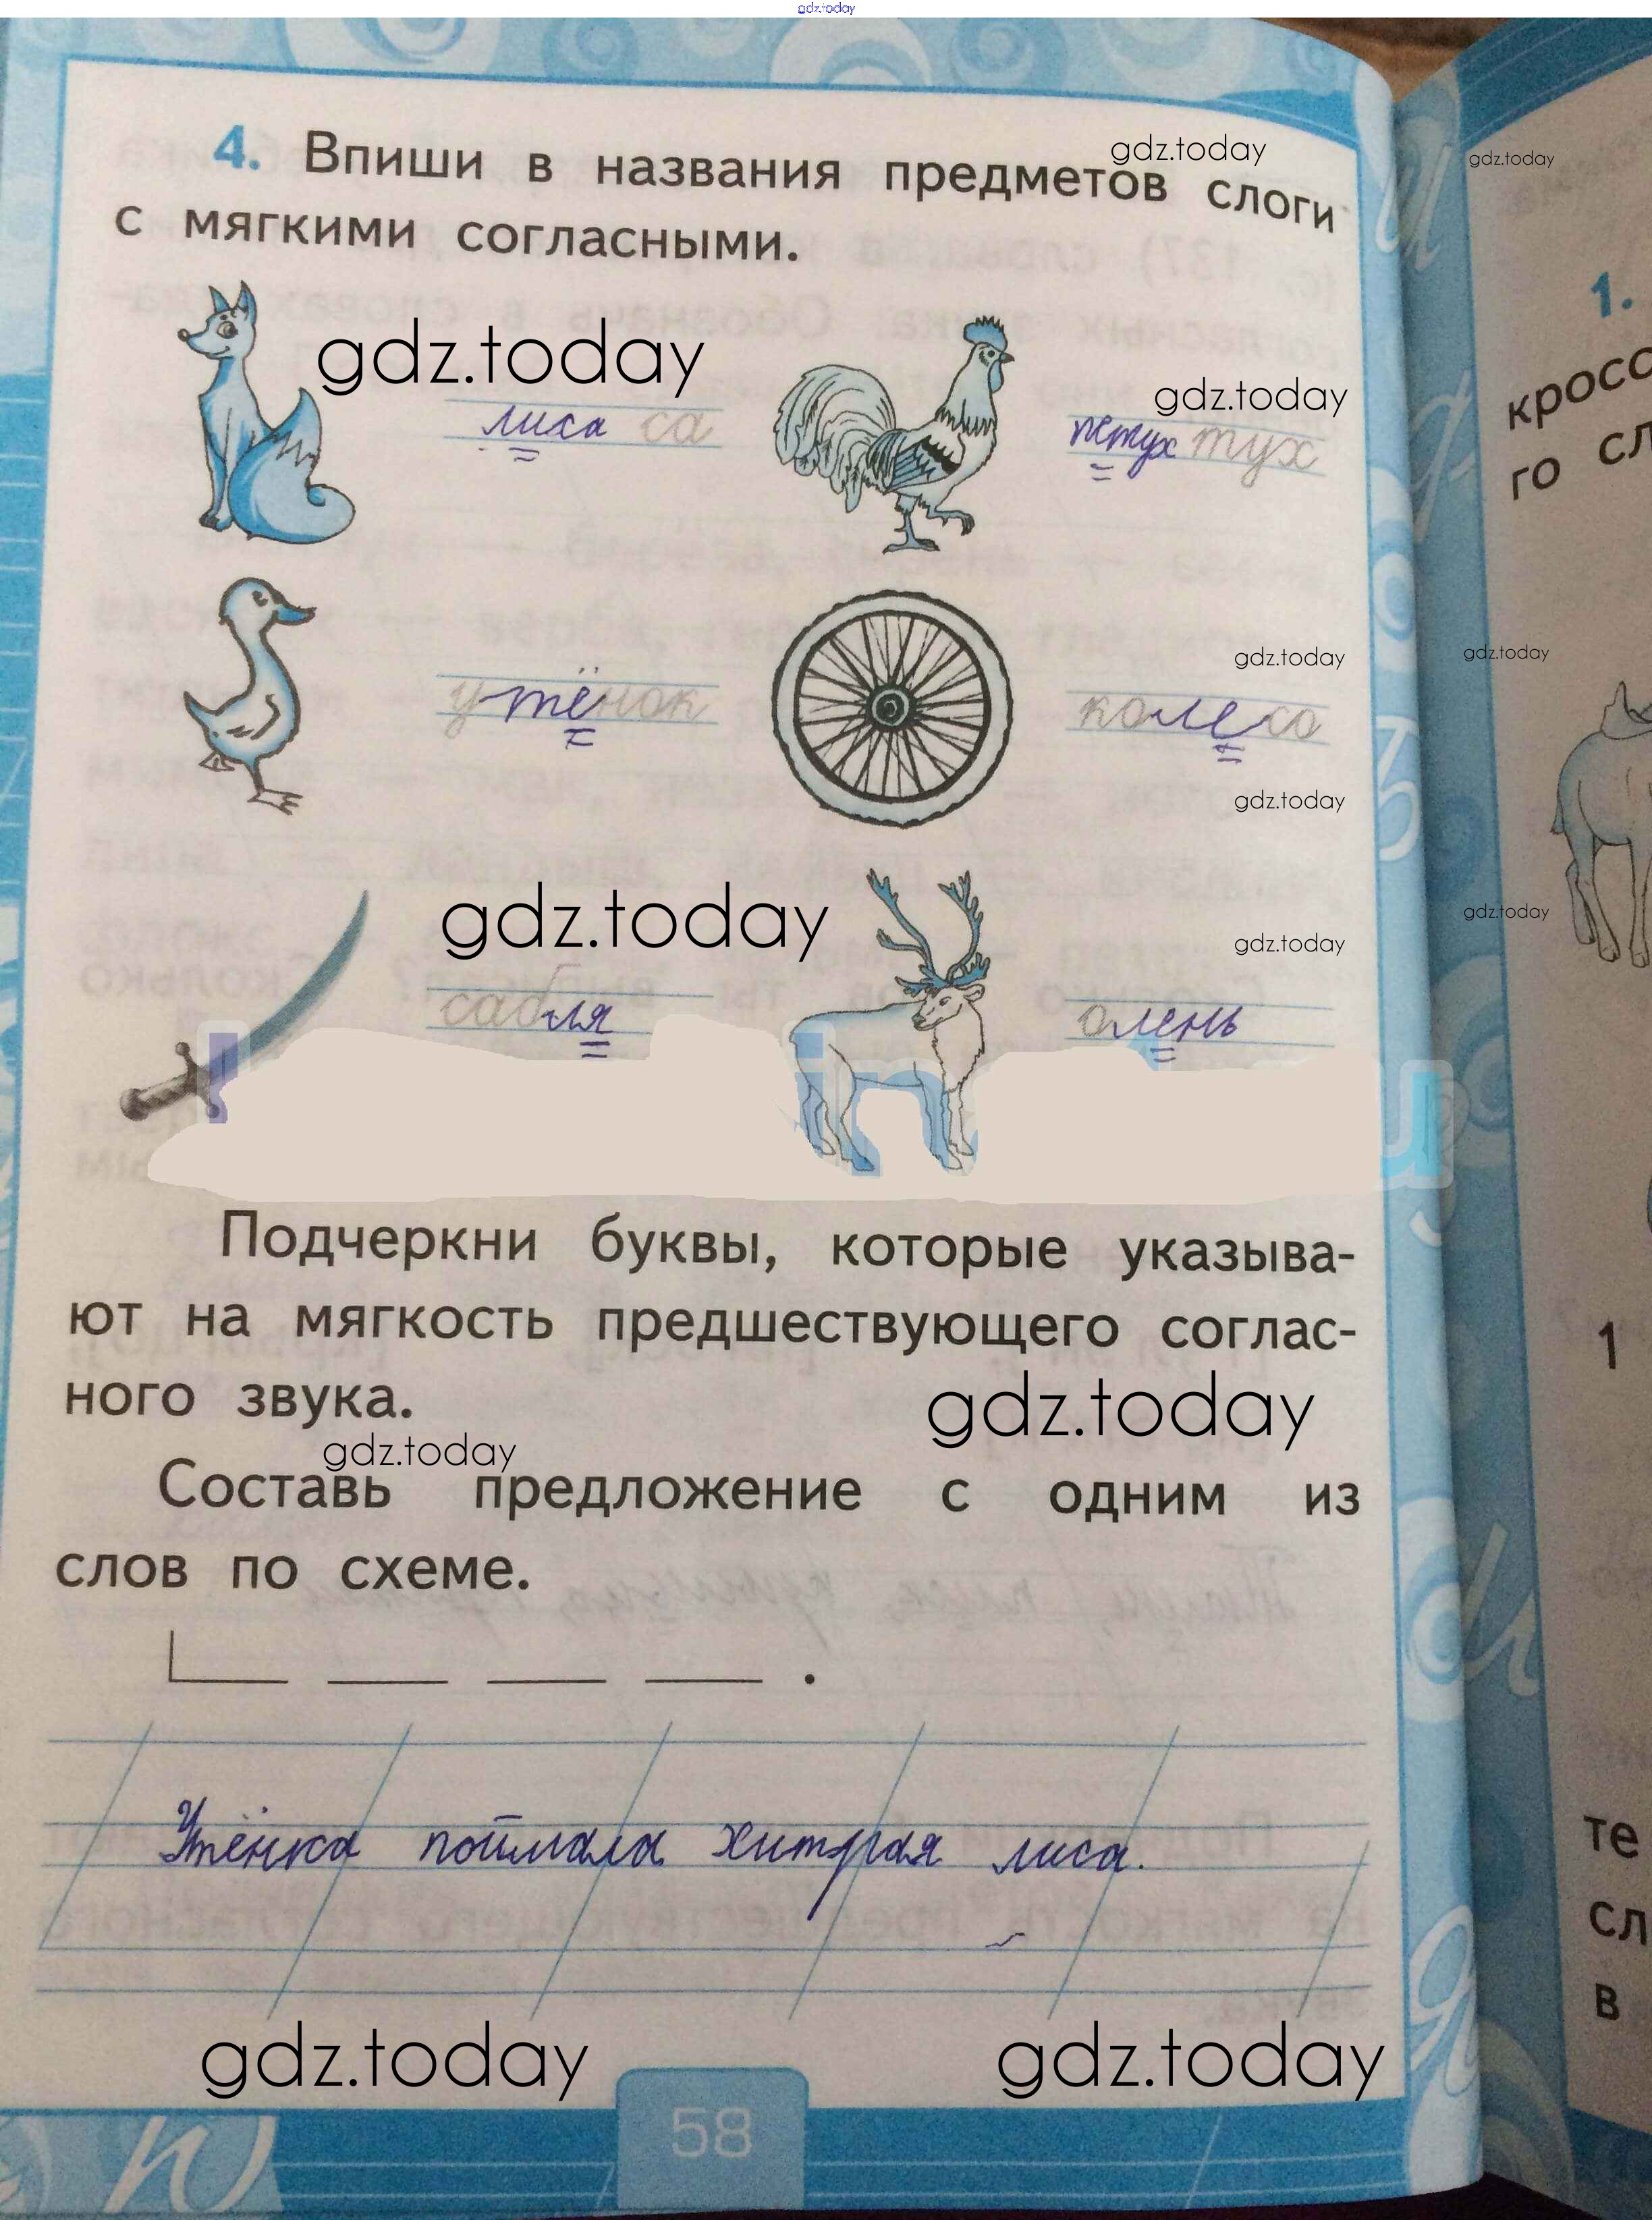 gdz.today
4. Впиши в названия предметов слоги
gdz.today
gdz.today
с мягкими согласными.
1.
gdz.today
кросс
го сл
gdz.today
лиса са
петух тух
gdz.today
gdz.today
утёнок
колесо
gdz.today
gdz.today
gdz.today
gdz.today
сабля
олень
Подчеркни буквы, которые указыва-
ют на мягкость предшествующего соглас-
1
ного звука.
gdz.today
gdz.today
Составь предложение с одним из
слов по схеме.
Утёнка поймала хитрая лиса.
те
сл
в
gdz.today
gdz.today
58